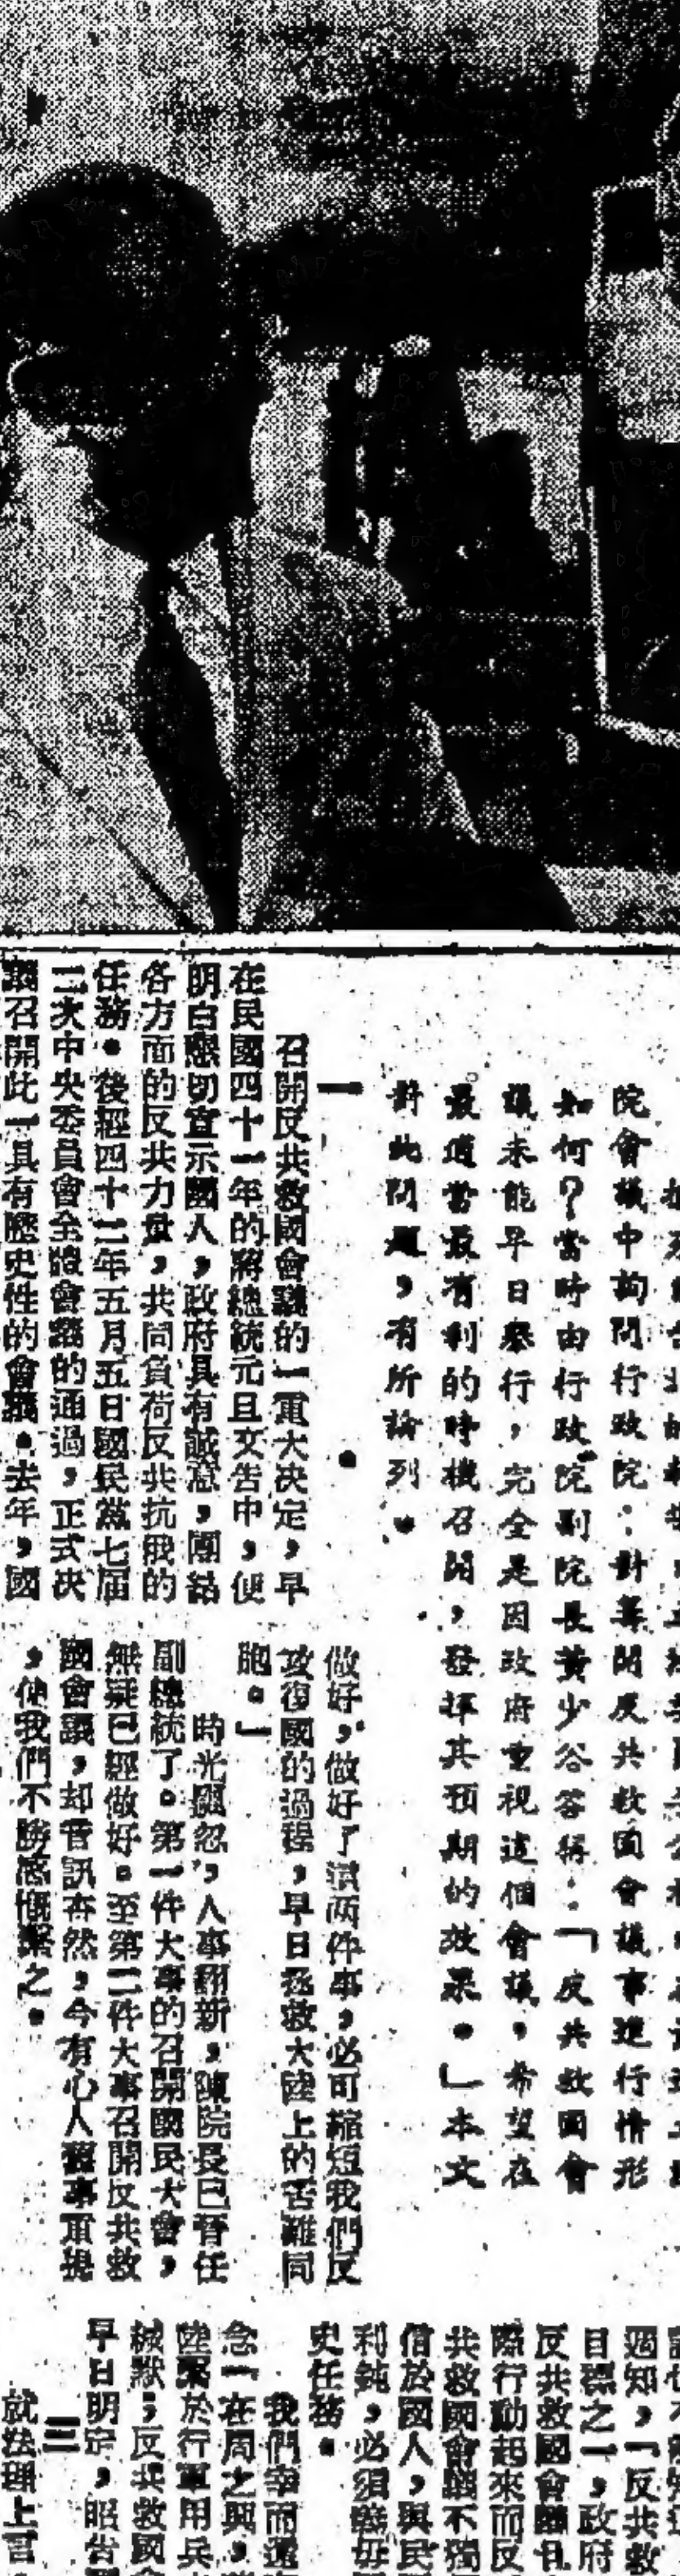 院會議中詢問行政院：對籌開反共救國會議事進行情形
如何？當時由行政院副院長黃少谷答稱：「反共救國會
議未能早日舉行，完全是因政府重視這個會議，希望在
最適當最有利的時機召開，發揮其預期的效果。」本文
對此問題，有所論列。
一
召開反共救國會議的一重大決定，早
在民國四十一年的蔣總統元旦文告中，便
明白懇切宣示國人，政府具有誠意，團結
各方面的反共力量，共同負荷反共抗俄的
任務。後經四十二年五月五日國民黨七屆
二次中央委員會全體會議的通過，正式決
議召開此一具有歷史性的會議。去年，國
做好，做好了這兩件事，必可縮短我們反
攻復國的過程，早日拯救大陸上的苦難同
胞。」
時光飄忽，人事翻新，陳院長已晉任
副總統了。第一件大事的召開國民大會，
無疑已經做好。至第二件大事召開反共救
國會議，却音訊杳然，今有心人舊事重提
，使我們不勝感慨繫之。
週知，「反共救
目標之一，政府
反共救國會議
際行動起來而反
共救國會議不獨
信於國人，與民
利鈍，必須
史任務。
我們幸而
念一在周之興，
陸 於行軍用兵
緘默；反共救國
早日明定，昭告
三
就法理上言